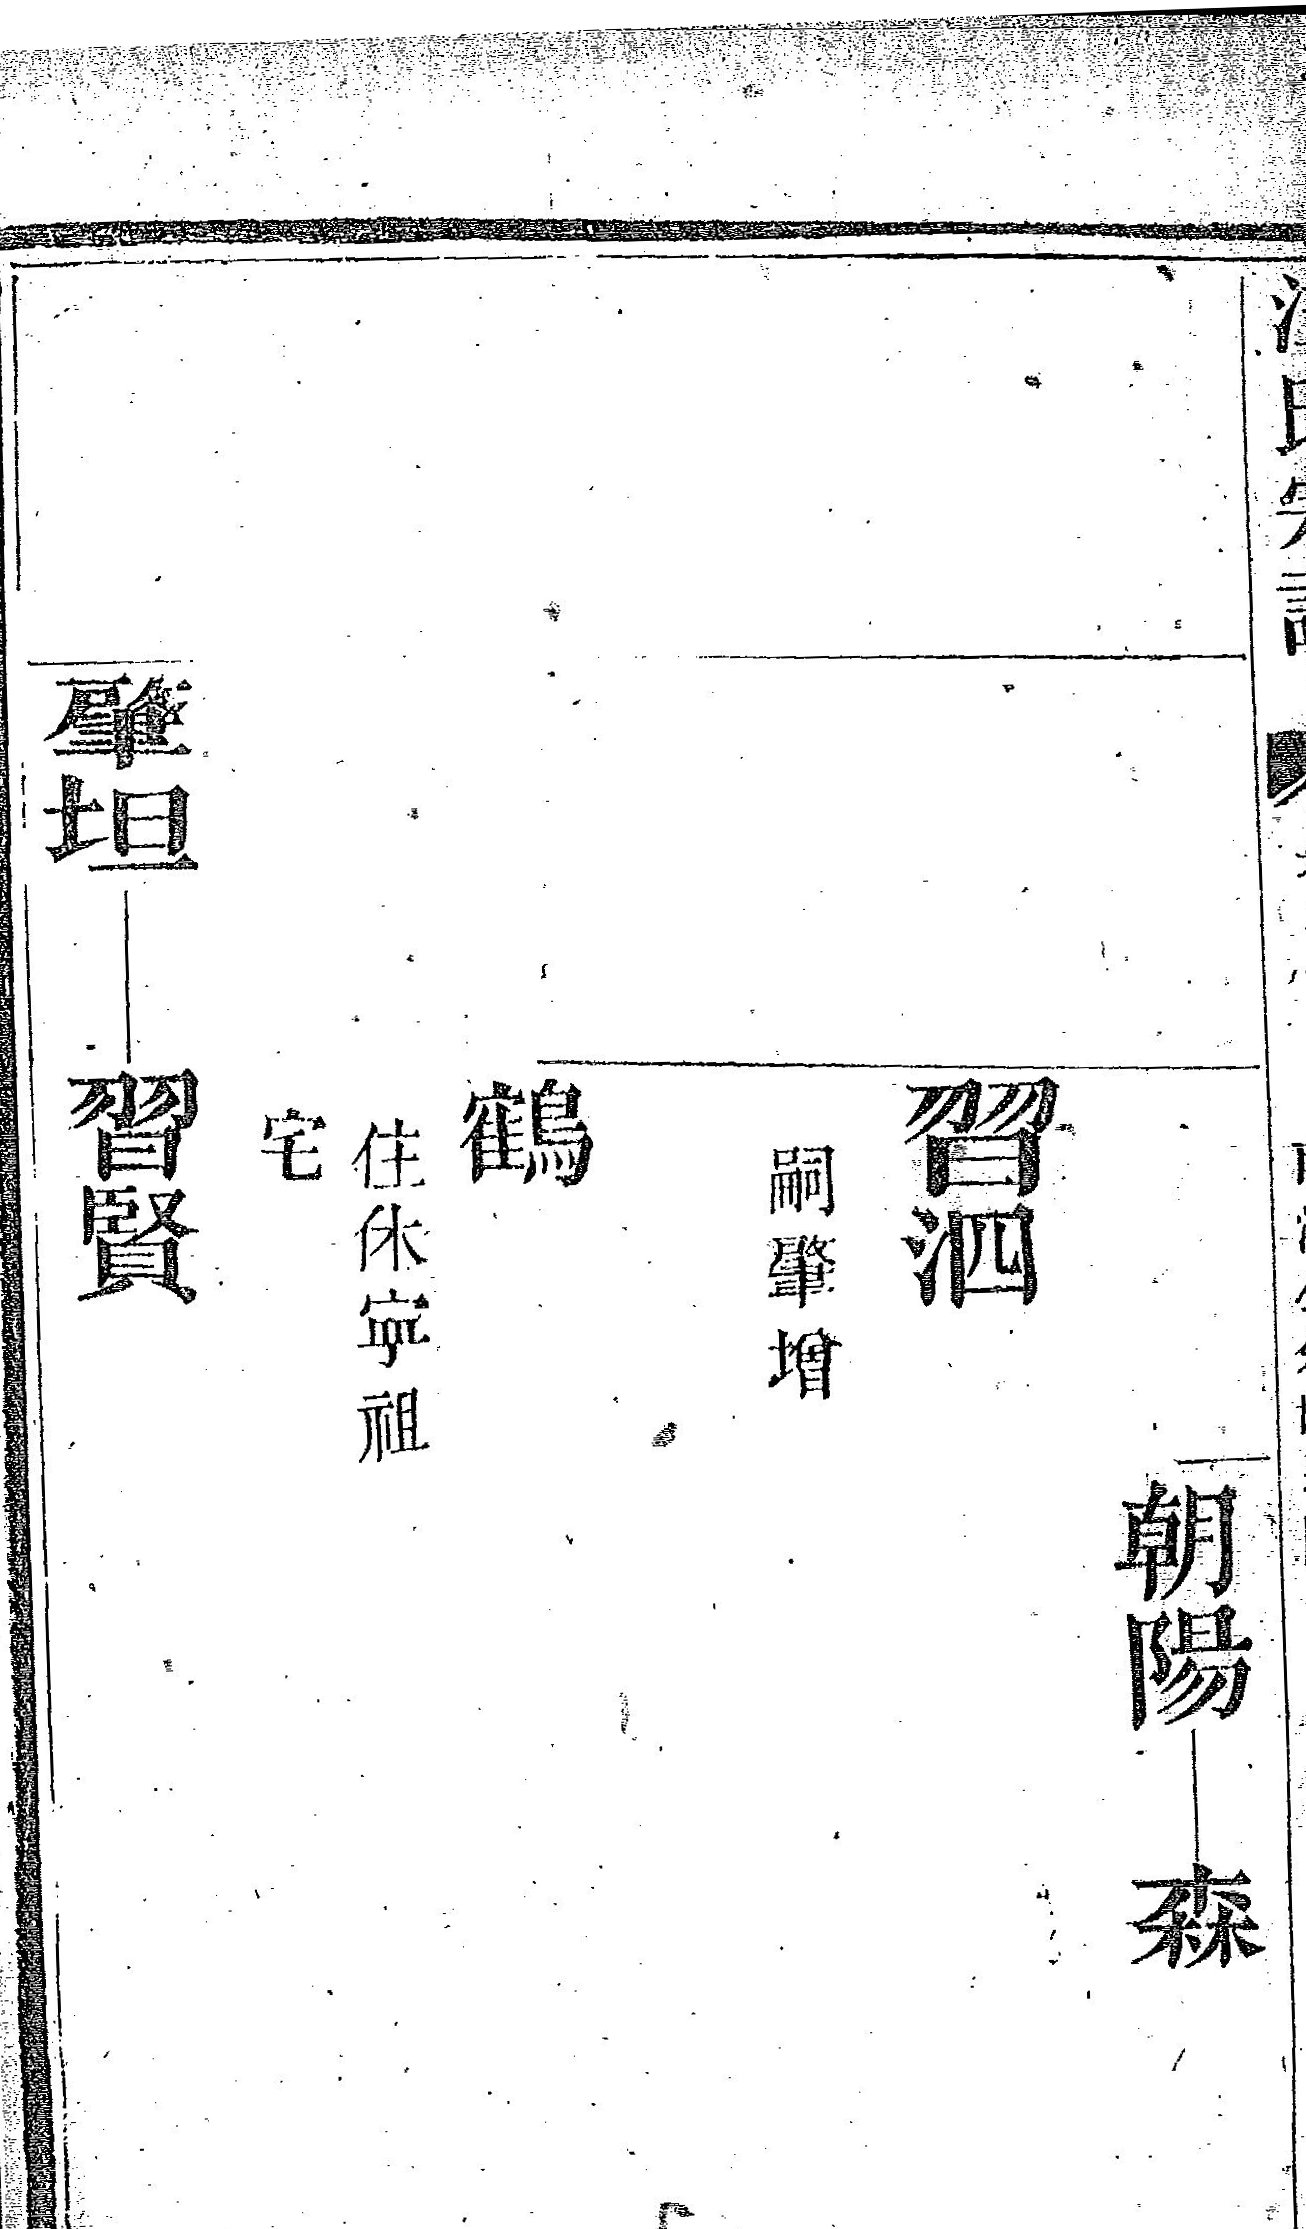 朝陽 森
習泗
嗣肇增
鶴
住休寕祖
宅
肇坦 習賢